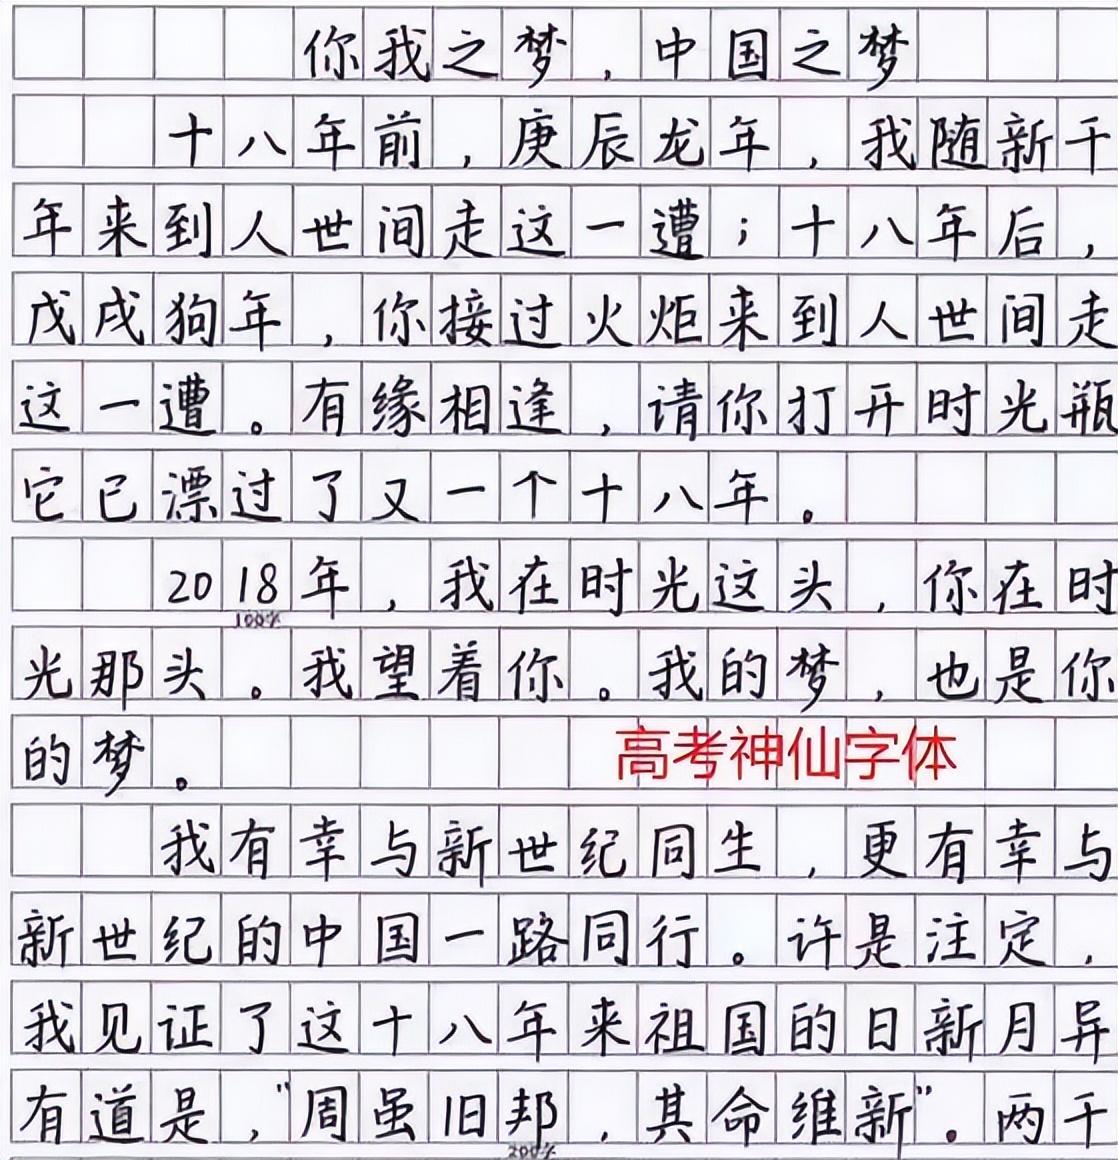 你我之梦，中国之梦
十八年前，庚辰龙年，我随新千
年来到人世间走这一遭；十八年后，
戊戌狗年，你接过火炬来到人世间走
这一遭。有缘相逢，请你打开时光瓶
它已漂过了又一个十八年。
2018年，我在时光这头，你在时
100字
光那头。我望着你。我的梦，也是你
的梦。
高考神仙字体
我有幸与新世纪同生，更有幸与
新世纪的中国一路同行。许是注定，
我见证了这十八年来祖国的日新月异
有道是，“周虽旧邦，其命维新”。两千
200字